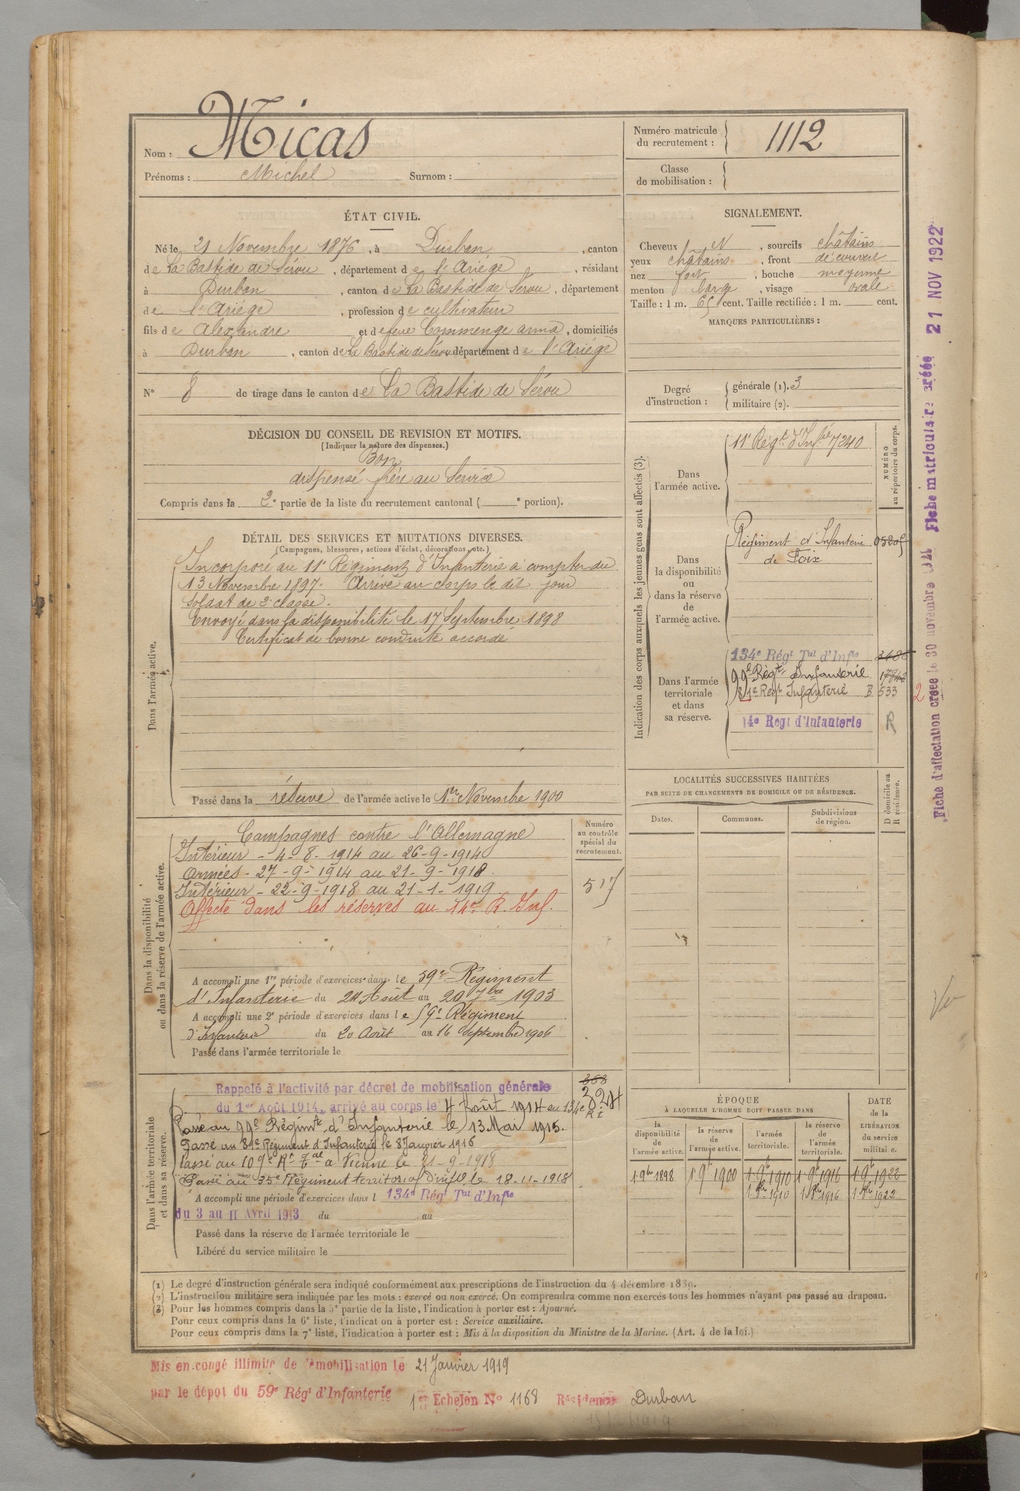 Nom : Micas
Prénoms : Michel Surnom :
Numéro matricule du recrutement : 1112
Classe de mobilisation :
ÉTAT CIVIL.
Né le 21 Novembre 1876, à Durban, canton
de La Bastide de Sérou, département de l'Ariège, résidant
à Durban, canton de La Bastide de Sérou, département
de l'Ariège, profession de cultivateur
fils de Alexandre et de feue Commenge anna, domiciliés
à Durban, canton de La Bastide de Sérou département de l'Ariège
N° 8 de tirage dans le canton de La Bastide de Sérou
SIGNALEMENT.
Cheveux N, sourcils châtains
yeux châtains, front découvert
nez fort, bouche moyenne
menton large, visage ovale
Taille : 1 m. 65 cent. Taille rectifiée : 1 m. cent.
MARQUES PARTICULIÈRES :
Degré d'instruction : générale (1). 3
militaire (2).
DÉCISION DU CONSEIL DE REVISION ET MOTIFS.
(Indiquer la nature des dispenses.)
Bon
dispensé frère au Service
Compris dans la 2e partie de la liste du recrutement cantonal ( e portion).
DÉTAIL DES SERVICES ET MUTATIONS DIVERSES.
(Campagnes, blessures, actions d'éclat, décorations, etc.)
Dans l'armée active.
Incorporé au 11e Régiment d'Infanterie à compter du
13 Novembre 1897. Arrivé au corps le dit jour
Soldat de 2e classe.
Envoyé dans la disponibilité le 17 Septembre 1898
Certificat de bonne conduite accordé
Passé dans la réserve de l'armée active le 1er Novembre 1900
Indication des corps auxquels les jeunes gens sont affectés (3).
NUMÉRO au répertoire du corps.
Dans l'armée active.
11e Régt d'Infie 7240
Dans la disponibilité ou dans la réserve de l'armée active.
Régiment d'Infanterie
de Foix
Dans l'armée territoriale et dans sa réserve.
134e Régt Tal d'Infie
99e Régt Infanterie
81e Régt Infanterie B 533
14e Regt d'Infanterie R
LOCALITÉS SUCCESSIVES HABITÉES
PAR SUITE DE CHANGEMENTS DE DOMICILE OU DE RÉSIDENCE.
Dates. Communes. Subdivisions de région. D domicile ou R résidence.
Dans la disponibilité ou dans la réserve de l'armée active.
Numéro au contrôle spécial du recrutement.
517
Campagnes contre l'Allemagne
Intérieur - 4-8-1914 au 26-9-1914
Armées - 27-9-1914 au 21-9-1918
Intérieur - 22-9-1918 au 21-1-1919
Affecté dans les réserves au 14e R. Inf.
A accompli une 1re période d'exercices dans le 59e Régiment
d'Infanterie du 24 Août au 20 7bre 1903
A accompli une 2e période d'exercices dans le 59e Régiment
d'Infanterie du 20 Août au 16 Septembre 1906
Passé dans l'armée territoriale le
Dans l'armée territoriale et dans sa réserve.
Rappelé à l'activité par décret de mobilisation générale
du 1er Août 1914, arrivé au corps le 4 Août 1914 au 134e
Passé au 99e Régimt d'Infanterie le 13 Mai 1915.
Passé au 81e Régiment d'Infanterie le 8 Janvier 1916
Passé au 109e Rt Tal à Vienne le 21-9-1918
Passé au 35e Régiment territorial d'infie le 18-11-1918
A accompli une période d'exercices dans l 134e Régt Tal d'Infie
du 3 au 11 Avril 1913 du au
Passé dans la réserve de l'armée territoriale le
Libéré du service militaire le
ÉPOQUE
À LAQUELLE L'HOMME DOIT PASSER DANS
la disponibilité de l'armée active. la réserve de l'armée active. l'armée territoriale. la réserve de l'armée territoriale. DATE de la LIBÉRATION du service militaire.
1 9bre 1898 1 9bre 1900 1 9bre 1910 1 9bre 1916 1 9bre 1922
1 8bre 1910 1 8bre 1916 1 8bre 1922
(1) Le degré d'instruction générale sera indiqué conformément aux prescriptions de l'instruction du 4 décembre 1889.
(2) L'instruction militaire sera indiquée par les mots : exercé ou non exercé. On comprendra comme non exercés tous les hommes n'ayant pas passé au drapeau.
(3) Pour les hommes compris dans la 5e partie de la liste, l'indication à porter est : Ajourné.
Pour ceux compris dans la 6e liste, l'indication à porter est : Service auxiliaire.
Pour ceux compris dans la 7e liste, l'indication à porter est : Mis à la disposition du Ministre de la Marine. (Art. 4 de la loi.)
Mis en congé illimité de démobilisation le 21 Janvier 1919
par le dépot du 59e Régt d'Infanterie 1er Echelon No 1168 Résidence Durban
Fiche matriculaire créée 21 NOV 1922
Fiche d'affectation créée le 30 novembre